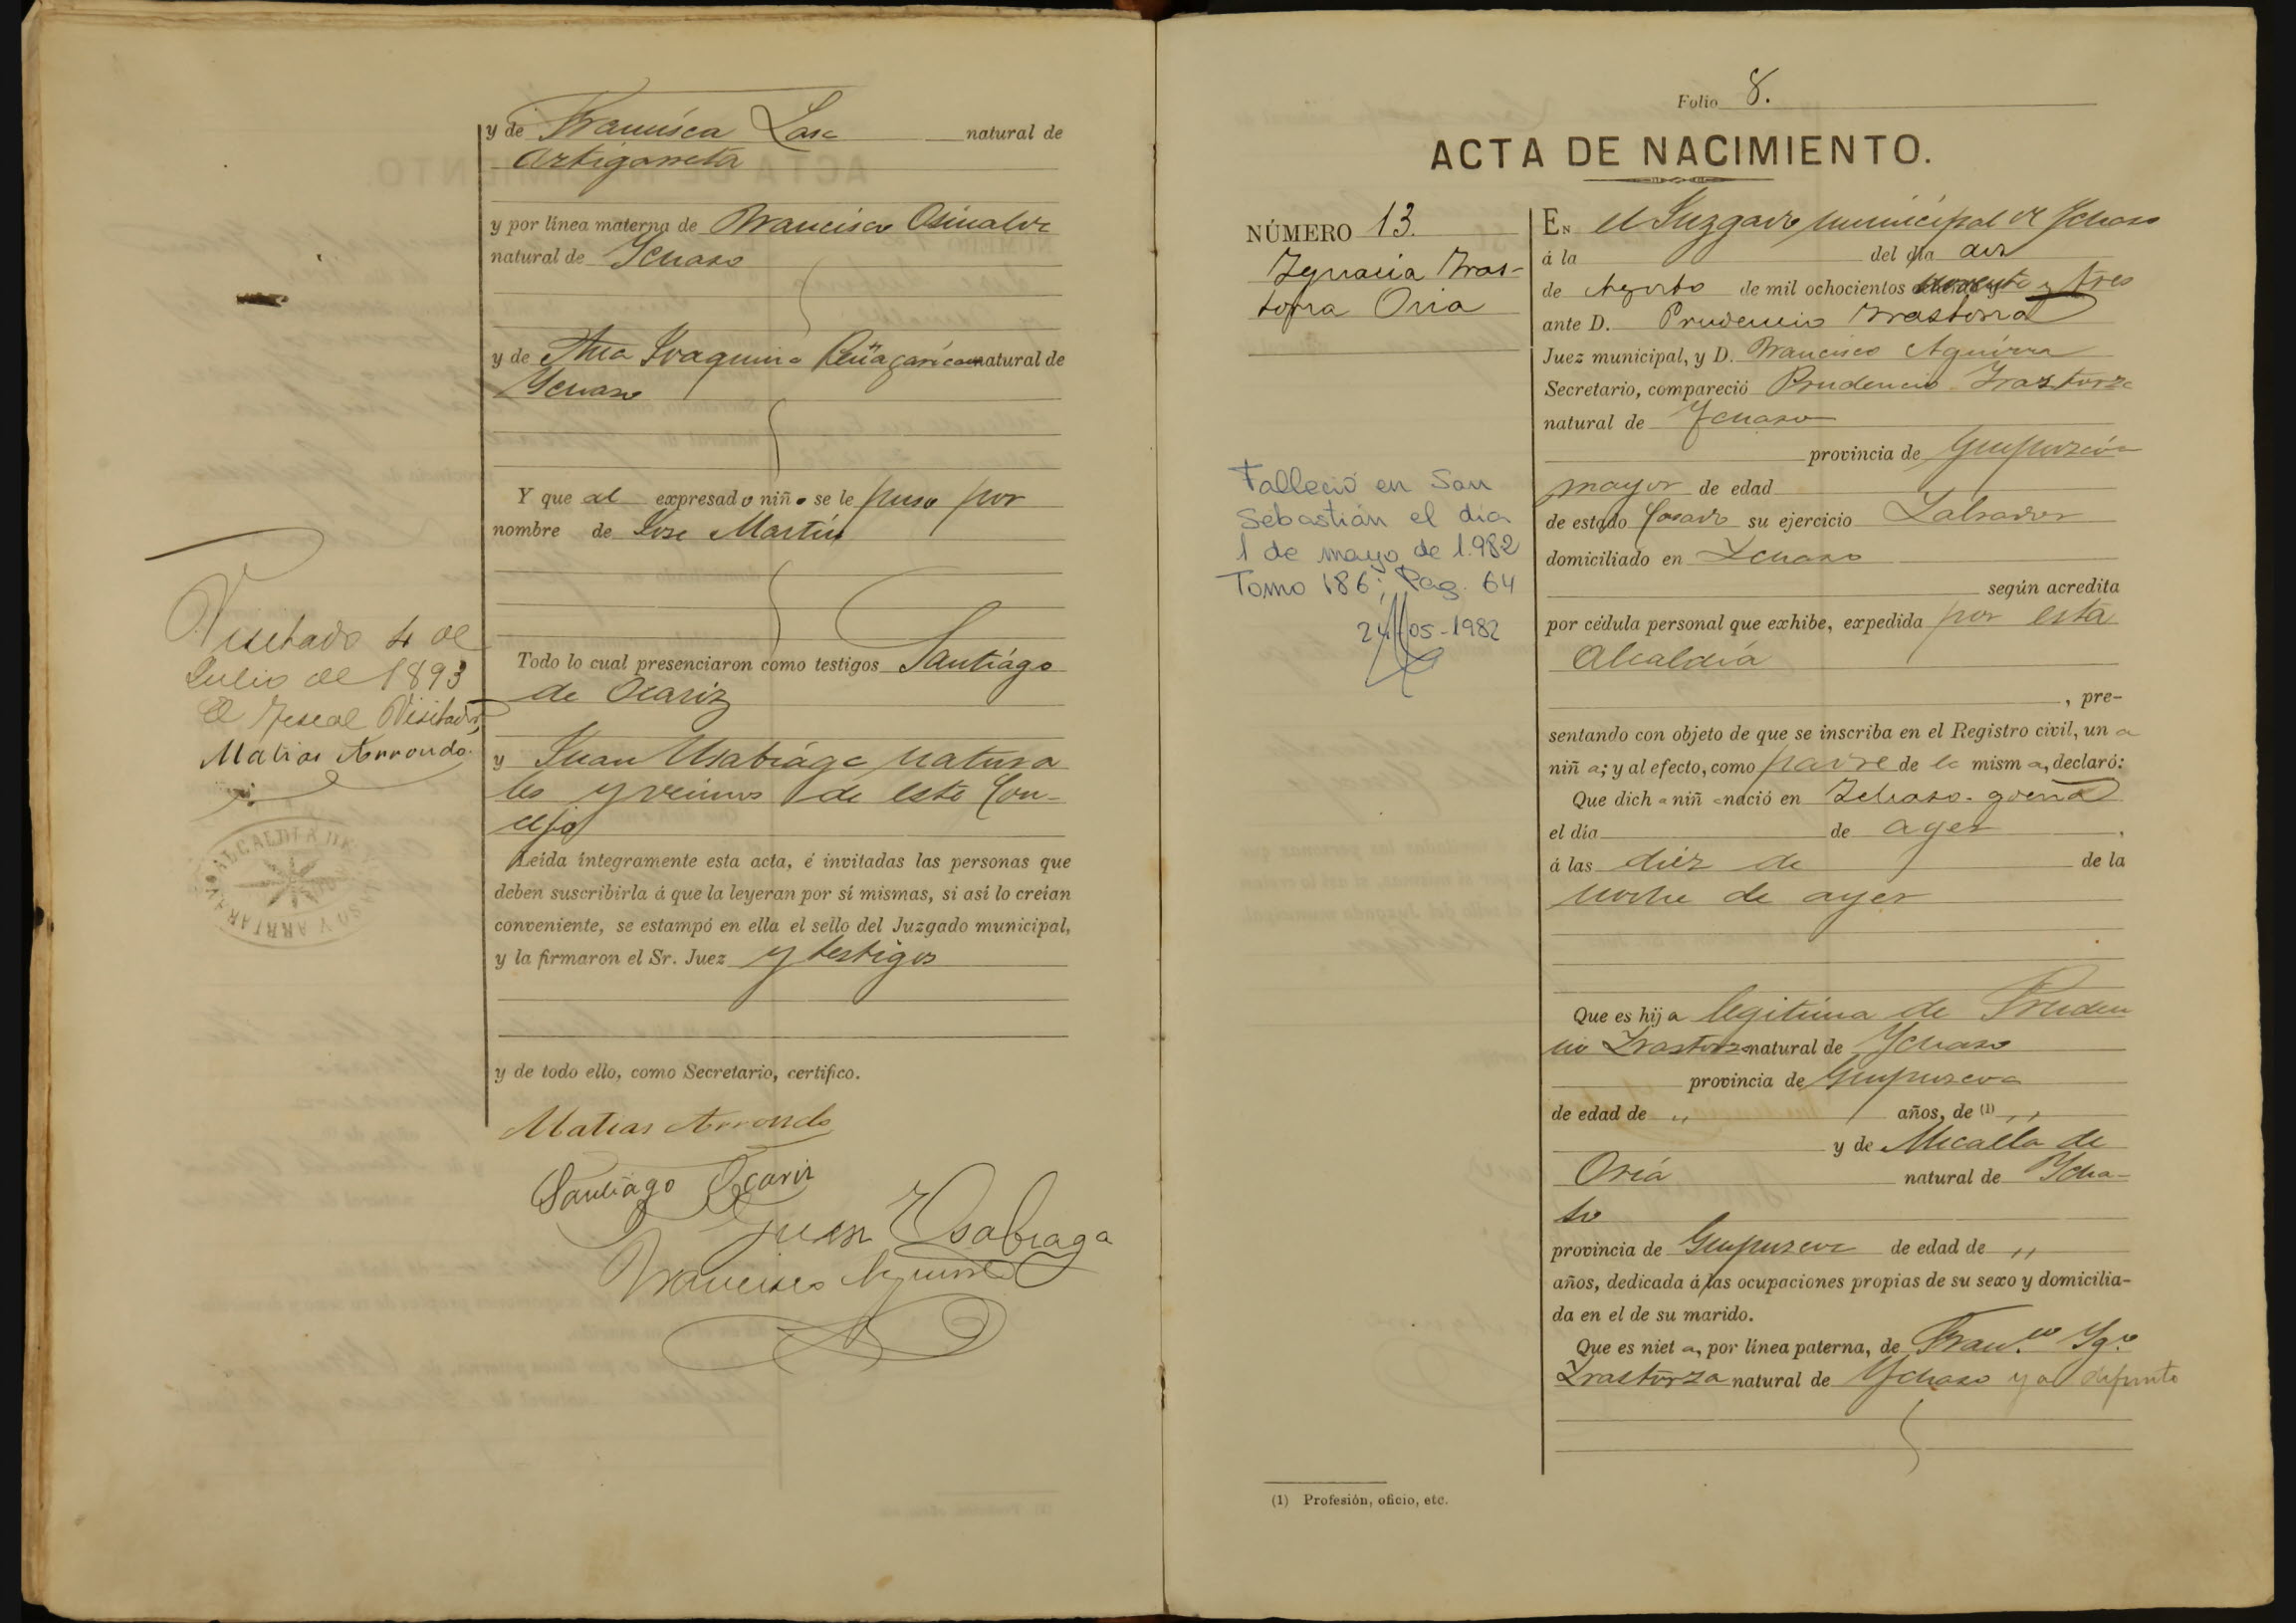 y de Francisca Lasa natural de
Artigarreta
y por línea materna de Francisco Osinalde
natural de Ychaso
y de Ana Joaquina natural de
Ychaso
Y que al expresado niño se le puso por
nombre de Jose Martín
Visitado 4 de
Julio de 1893
El Fiscal Visitador,
Matias Arrondo.
ALCALDIA DE ICHASO Y ARRIARAN
Todo lo cual presenciaron como testigos Santiágo
de Ocariz
y Juan Usabiága natura
les y vecinos de este Con-
cejo
Leída íntegramente esta acta, é invitadas las personas que
deben suscribirla á que la leyeran por sí mismas, si así lo creían
conveniente, se estampó en ella el sello del Juzgado municipal,
y la firmaron el Sr. Juez y testigos
y de todo ello, como Secretario, certifico.
Matias Arrondo
Santiago Ocariz
Juan Usabiaga
Francisco Aguirre
Folio 8.
ACTA DE NACIMIENTO.
NÚMERO 13.
Ygnacia Iras-
torza Oria
Falleció en San
Sebastián el día
1 de mayo de 1.982
Tomo 186; Pag. 64
24-05-1982
EN el Juzgado municipal de Ychaso
á la del día dos
de Agosto de mil ochocientos noventa y tres
ante D. Prudencio Irastorza
Juez municipal, y D. Francisco Aguirre
Secretario, compareció Prudencio Irastorza
natural de Ychaso
provincia de Guipuzcoa
mayor de edad
de estado Casado su ejercicio Labrador
domiciliado en Ychaso
según acredita
por cédula personal que exhibe, expedida por esta
Alcaldía
, pre-
sentando con objeto de que se inscriba en el Registro civil, un a
niñ a; y al efecto, como padre de la mism a, declaró:
Que dich a niñ a nació en Ychaso-goena
el día de ayer,
á las diéz de de la
noche de ayer
Que es hij a legitima de Pruden
cio Irastorza natural de Ychaso
provincia de Guipuzcoa
de edad de ,, años, de (1) ,,
y de Micaela de
Oria natural de Ycha-
so
provincia de Guipuzcoa de edad de ,,
años, dedicada á las ocupaciones propias de su sexo y domicilia-
da en el de su marido.
Que es niet a, por línea paterna, de Franco. Ygo.
Irastorza natural de Ychaso ya difunto
(1) Profesión, oficio, etc.